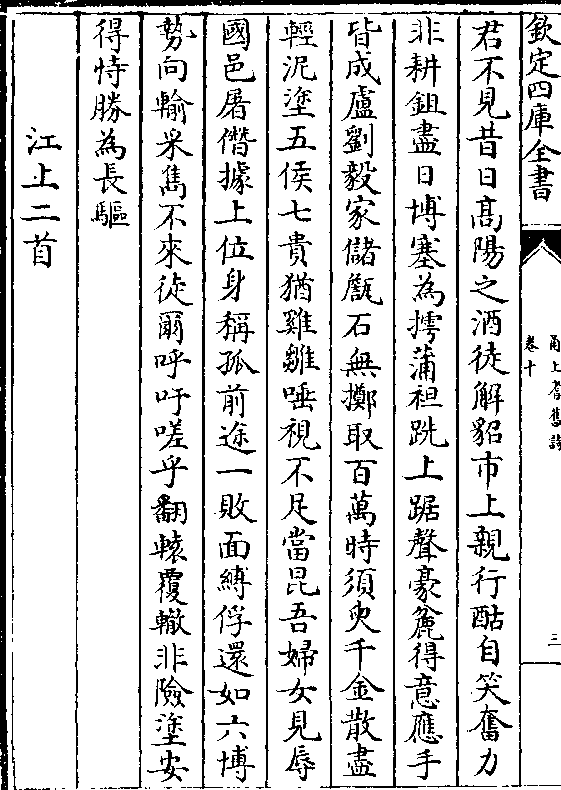 欽定四庫全書
甬上耆舊詩
卷十
三
君不見昔日高陽之酒徒解貂市上親行酤自笑奮力
非耕鉏盡日博塞為摴蒲袒跣上踞聲豪麄得意應手
皆成盧劉毅家儲甔石無擲取百萬時須臾千金散盡
輕泥塗五侯七貴猶雞雛唾視不足當昆吾婦女見辱
國邑屠僭據上位身稱孤前途一敗面縛俘還如六博
勢向輸米雋不來徒爾呼吁嗟乎翻轅覆轍非險塗安
得恃勝為長驅
江上二首